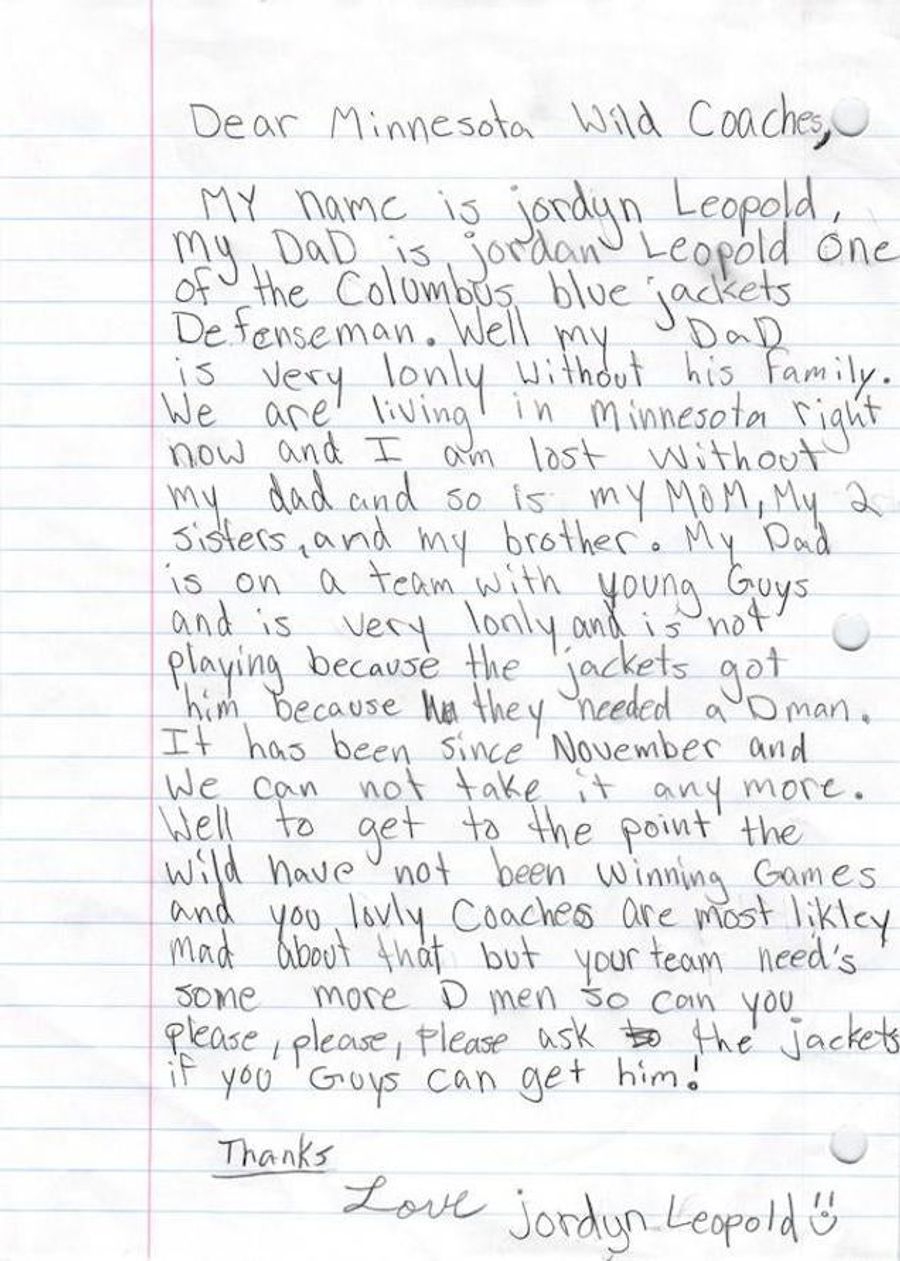 Dear Minnesota Wild Coaches,
MY name is jordyn Leopold,
my DaD is jordan Leopold One
of the Columbus blue jackets
Defenseman. Well my DaD
is very lonly without his family.
We are living in minnesota right
now and I am lost without
my dad and so is my MOM, My 2
sisters, and my brother. My Dad
is on a team with young Guys
and is very lonly and is not
playing because the jackets got
him because they needed a D man.
It has been since November and
We can not take it any more.
Well to get to the point the
wild have not been winning Games
and you lovly Coaches are most likley
mad about that but your team need's
some more D men so can you
please, please, please ask the jackets
if you Guys can get him!
Thanks
Love jordyn Leopold